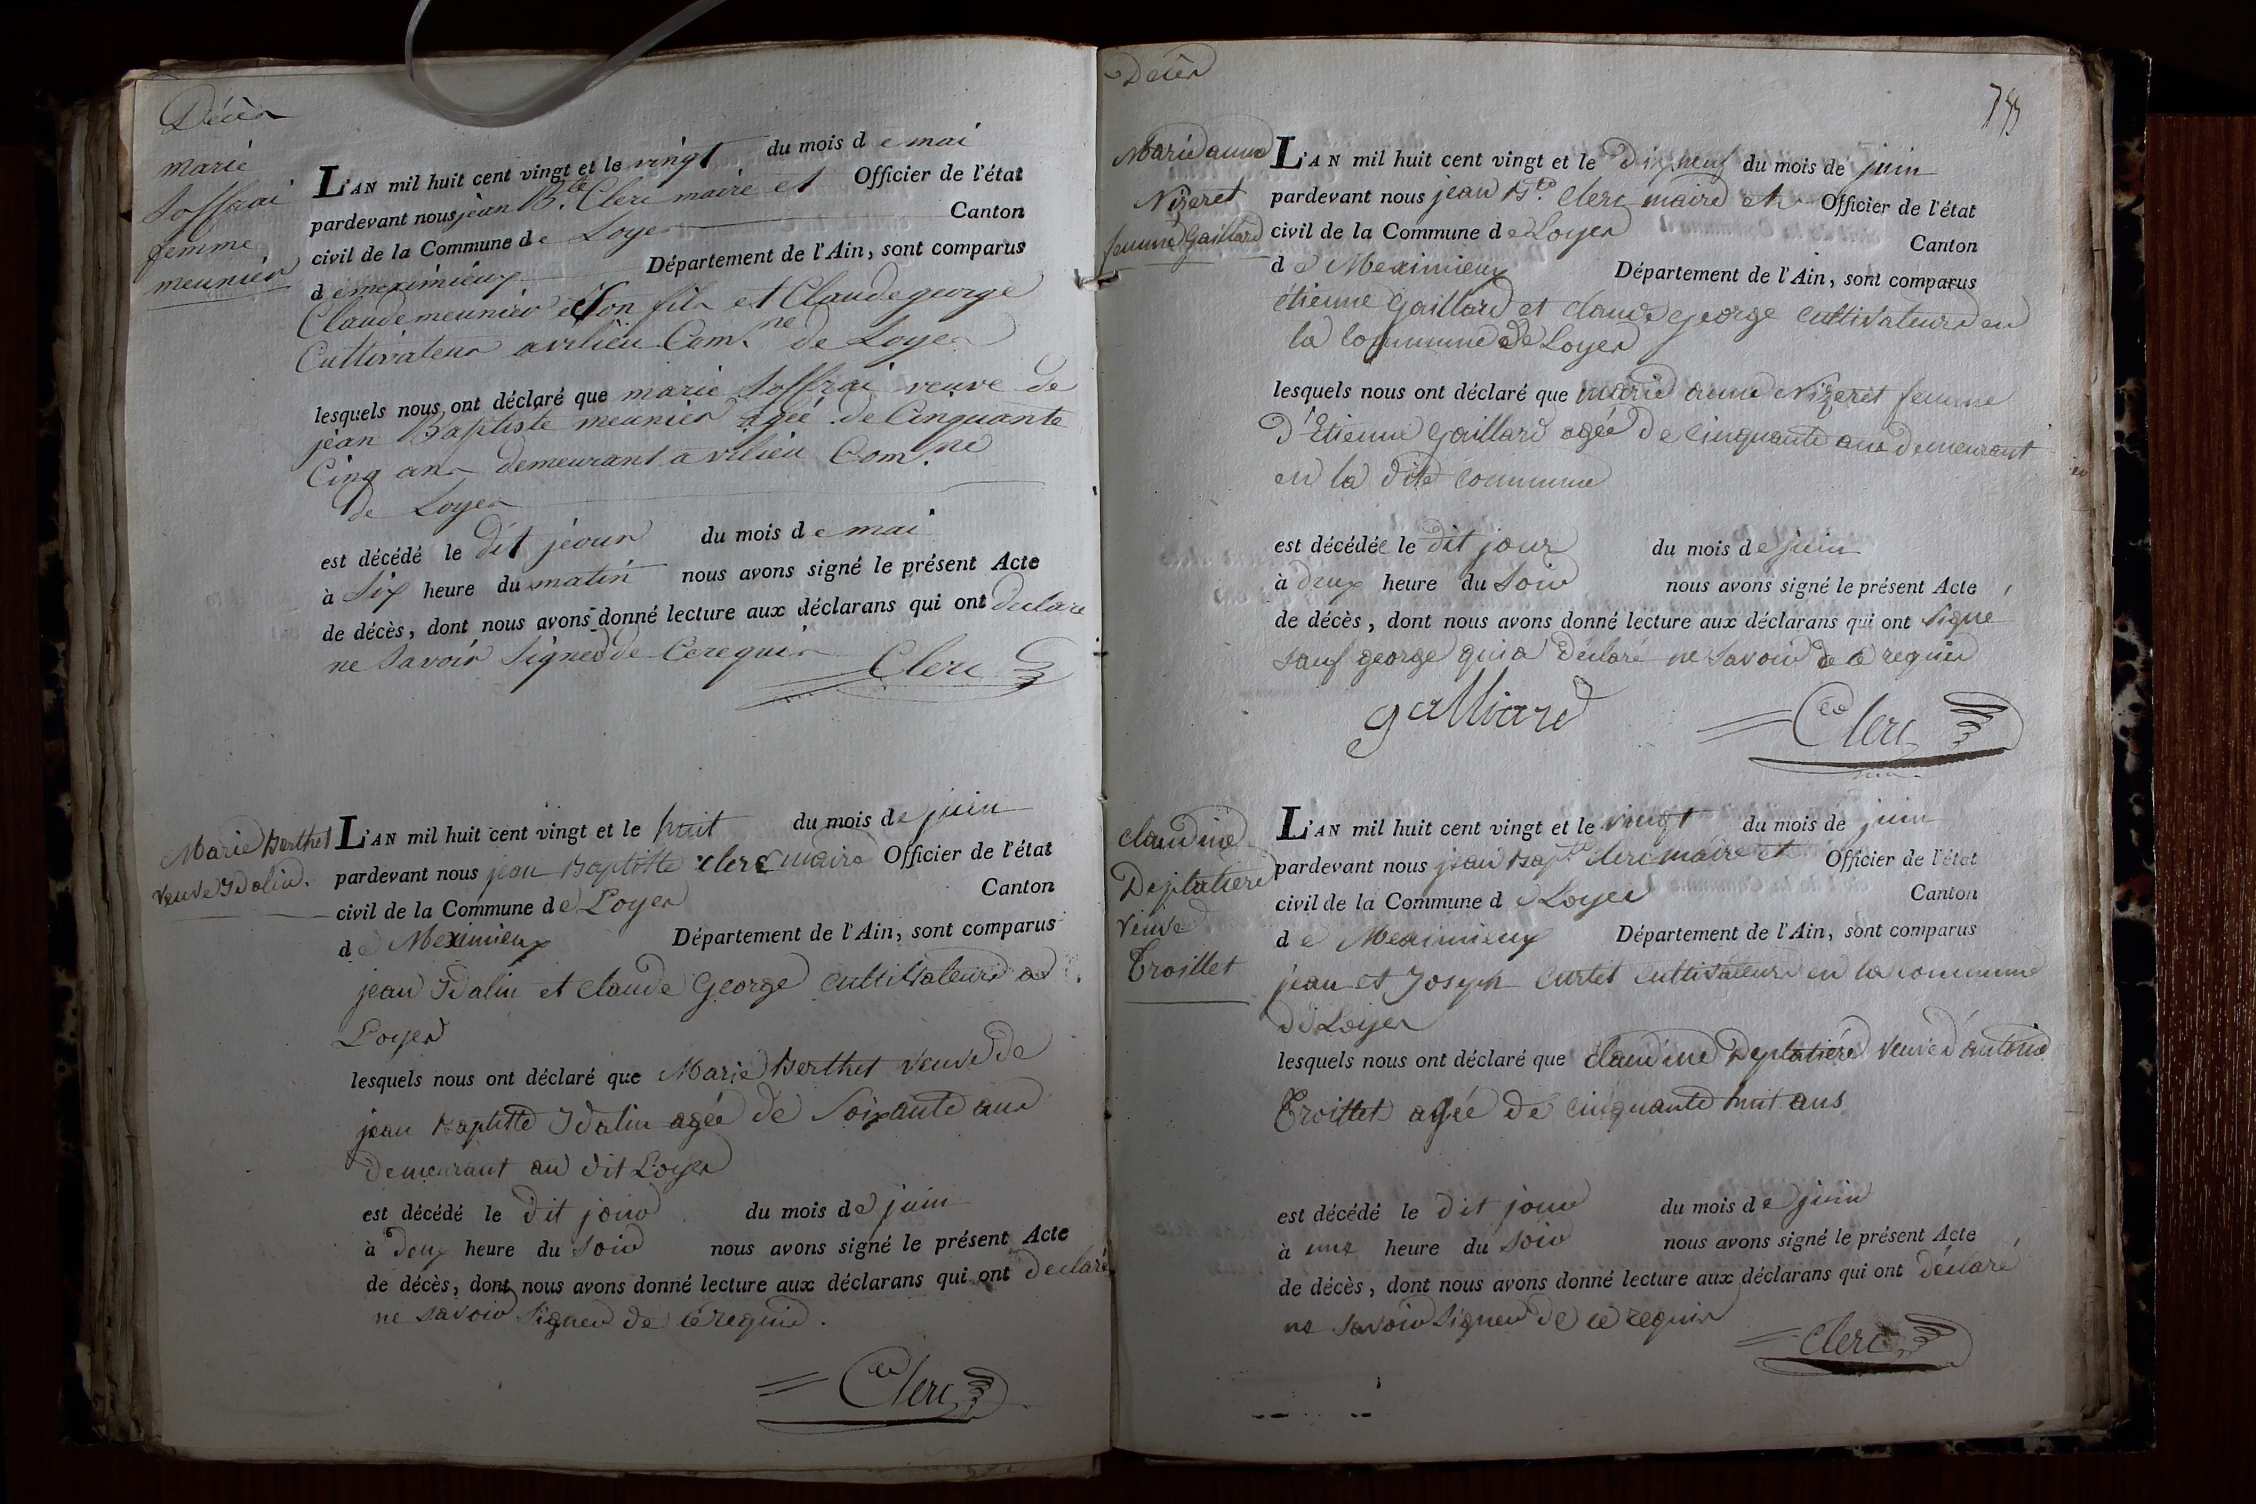 Décès
marie
Joffrai
femme
meunier
L'AN mil huit cent vingt et le vingt du mois de mai
pardevant nous jean B.te Clerc maire et Officier de l'état
civil de la Commune de Loyes Canton
de meximieux Département de l'Ain, sont comparus
Claude meunier son fils et Claude george
Cultivateurs a vilieu Com.ne de Loyes
lesquels nous ont déclaré que marie Joffrai veuve de
jean Baptiste meunier agée de Cinquante
Cinq ans demeurant a vilieu Com.ne
de Loyes
est décédé le dit jour du mois de mai
à Six heure du matin nous avons signé le présent Acte
de décès, dont nous avons donné lecture aux déclarans qui ont declaré
ne Savoir Signer de Ce requis
Clerc
Marie Berthet
veuve Idalin.
L'AN mil huit cent vingt et le huit du mois de juin
pardevant nous jean Baptiste clerc maire Officier de l'état
civil de la Commune de Loyes Canton
de Meximieux Département de l'Ain, sont comparus
jean Idalin et claude George cultivateurs a
Loyes
lesquels nous ont déclaré que Marie Berthet veuve de
jean Baptiste Idalin agée de Soixante ans
demeurant au dit Loyes
est décédé le dit jour du mois de juin
à deux heure du soir nous avons signé le présent Acte
de décès, dont nous avons donné lecture aux déclarans qui ont declaré
ne savoir signer de ce requis.
Clerc
Décès
Marie anne
Nizeret
femme Gaillard
L'AN mil huit cent vingt et le dix neuf du mois de juin
pardevant nous jean B.te Clerc maire et Officier de l'état
civil de la Commune de Loyes Canton
de Meximieux Département de l'Ain, sont comparus
étienne Gaillard et claude George cultivateurs en
la commune de Loyes
lesquels nous ont déclaré que marie anne Nizeret femme
d'Etienne Gaillard agée de cinquante ans demeurant
en la dite commune
est décédée le dit jour du mois de juin
à deux heure du Soir nous avons signé le présent Acte
de décès, dont nous avons donné lecture aux déclarans qui ont signé
sauf george qui a déclaré ne savoir de ce requis
galliard
Clerc
claudine
Deplatiere
veuve
Troillet
L'AN mil huit cent vingt et le vingt du mois de juin
pardevant nous jean Bap.te clerc maire et Officier de l'état
civil de la Commune de Loyes Canton
de Meximieux Département de l'Ain, sont comparus
jean et Joseph Curtet cultivateurs en la commune
de Loyes
lesquels nous ont déclaré que claudine Deplatiére veuve d'antoine
Troillet agée de cinquante huit ans
est décédé le dit jour du mois de juin
à une heure du soir nous avons signé le présent Acte
de décès, dont nous avons donné lecture aux déclarans qui ont déclaré
ne savoir signer de ce requis
Clerc